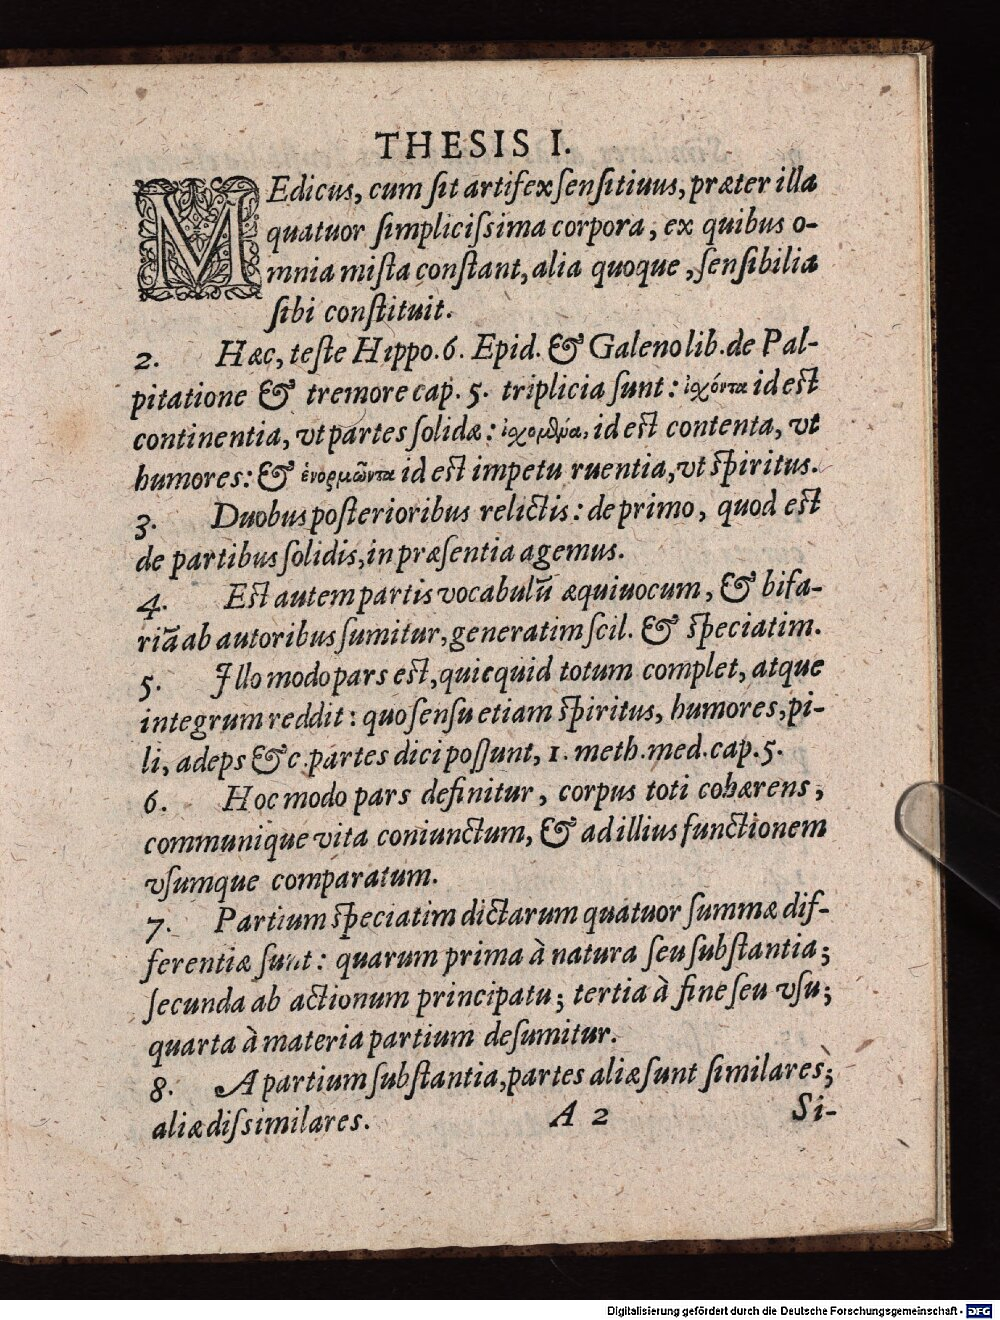 THESIS I.
MEdicus, cum ſit artifex ſenſitiuus, præter illa
quatuor ſimpliciſsima corpora, ex quibus o-
mnia miſta conſtant, alia quoque, ſenſibilia
ſibi conſtituit.
2. Hæc, teſte Hippo. 6. Epid. & Galeno lib. de Pal-
pitatione & tremore cap. 5. triplicia ſunt: ἰχόντα id eſt
continentia, vt partes ſolidæ: id eſt contenta, vt
humores: & ἐνορμῶντα id eſt impetu ruentia, vt ſpiritus.
3. Duobus poſterioribus relictis: de primo, quod eſt
de partibus ſolidis, in præſentia agemus.
4. Eſt autem partis vocabulū æquiuocum, & bifa-
riā ab autoribus ſumitur, generatim ſcil. & ſpeciatim.
5. Illo modo pars eſt, quicquid totum complet, atque
integrum reddit: quo ſenſu etiam ſpiritus, humores, pi-
li, adeps &c. partes dici poſſunt, 1. meth. med. cap. 5.
6. Hoc modo pars definitur, corpus toti cohærens,
communique vita coniunctum, & ad illius functionem
vſumque comparatum.
7. Partium ſpeciatim dictarum quatuor ſummæ dif-
ferentiæ ſunt: quarum prima à natura ſeu ſubſtantia;
ſecunda ab actionum principatu; tertia à fine ſeu vſu;
quarta à materia partium deſumitur.
8. A partium ſubſtantia, partes aliæ ſunt ſimilares;
aliæ diſsimilares. A 2 Si-
Digitalisierung gefördert durch die Deutsche Forschungsgemeinschaft - DFG